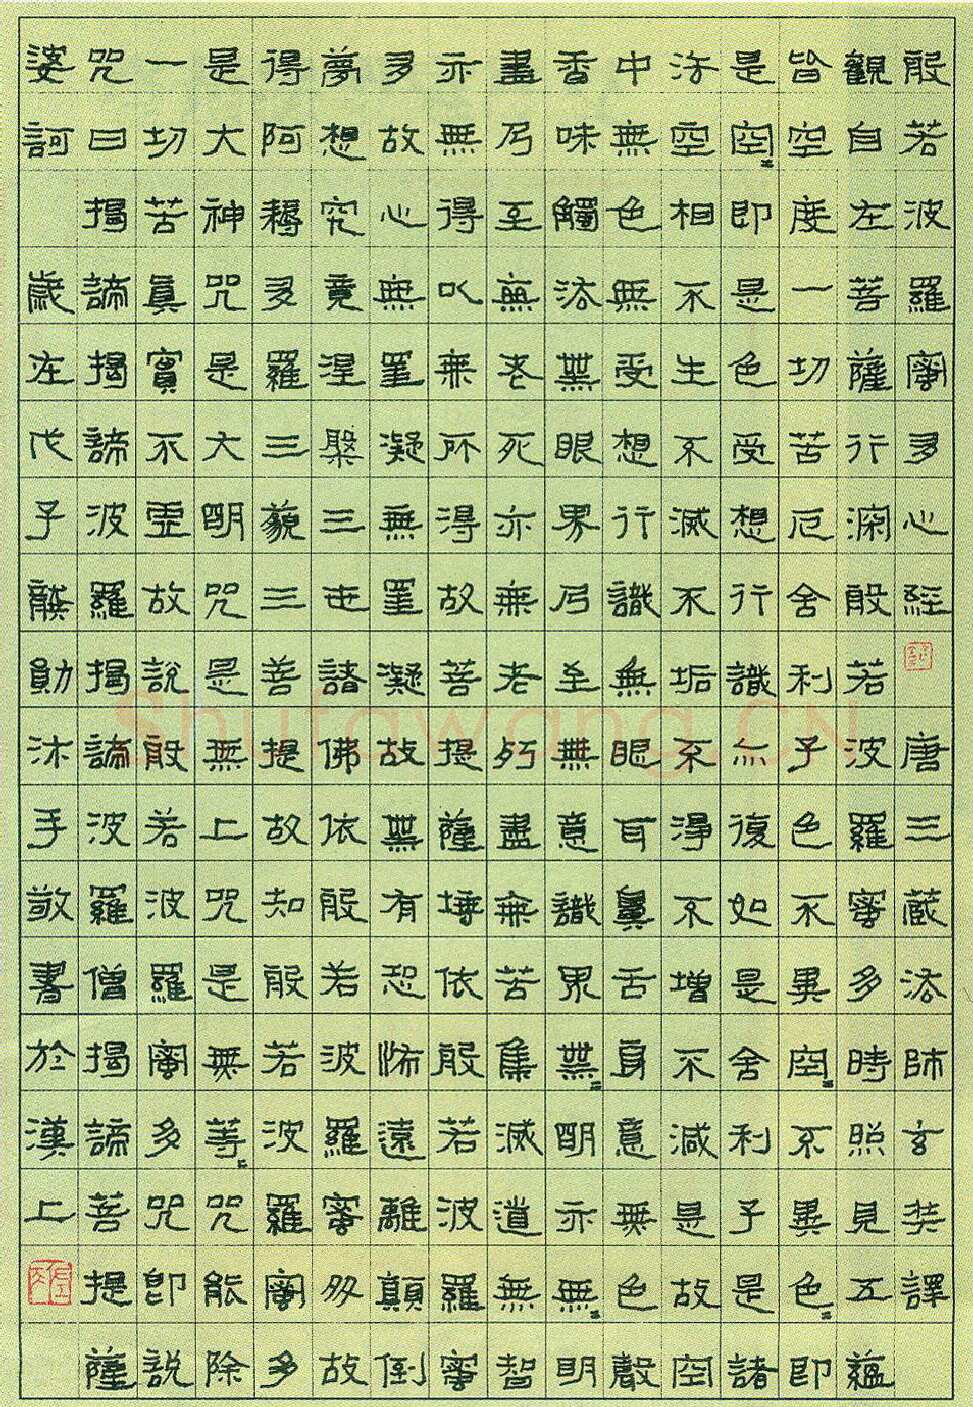 般若波羅蜜多心經 唐三藏法師玄奘譯
觀自在菩薩行深般若波羅蜜多時照見五蘊
皆空度一切苦厄舍利子色不異空〻不異色〻即
是空〻即是色受想行識亦復如是舍利子是諸
法空相不生不滅不垢不淨不增不減是故空
中無色無受想行識無眼耳鼻舌身意無色聲
香味觸法無眼界乃至無意識界無〻明亦無〻明
盡乃至無老死亦無老死盡無苦集滅道無智
亦無得以無所得故菩提薩埵依般若波羅蜜
多故心無罣凝無罣凝故無有恐怖遠離顛倒
夢想究竟涅槃三世諸佛依般若波羅蜜多故
得阿耨多羅三藐三菩提故知般若波羅蜜多
是大神咒是大明咒是無上咒是無等〻咒能除
一切苦真實不虛故說般若波羅蜜多咒即說
咒曰揭諦揭諦波羅揭諦波羅僧揭諦菩提薩
婆訶 歲在戊子龔勛沐手敬書於漢上
Shufawang.CN